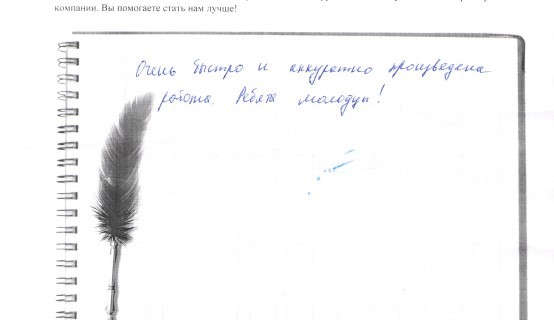 компании. Вы помогаете стать нам лучше!
Очень быстро и аккуратно произведена
работа. Ребята молодцы!